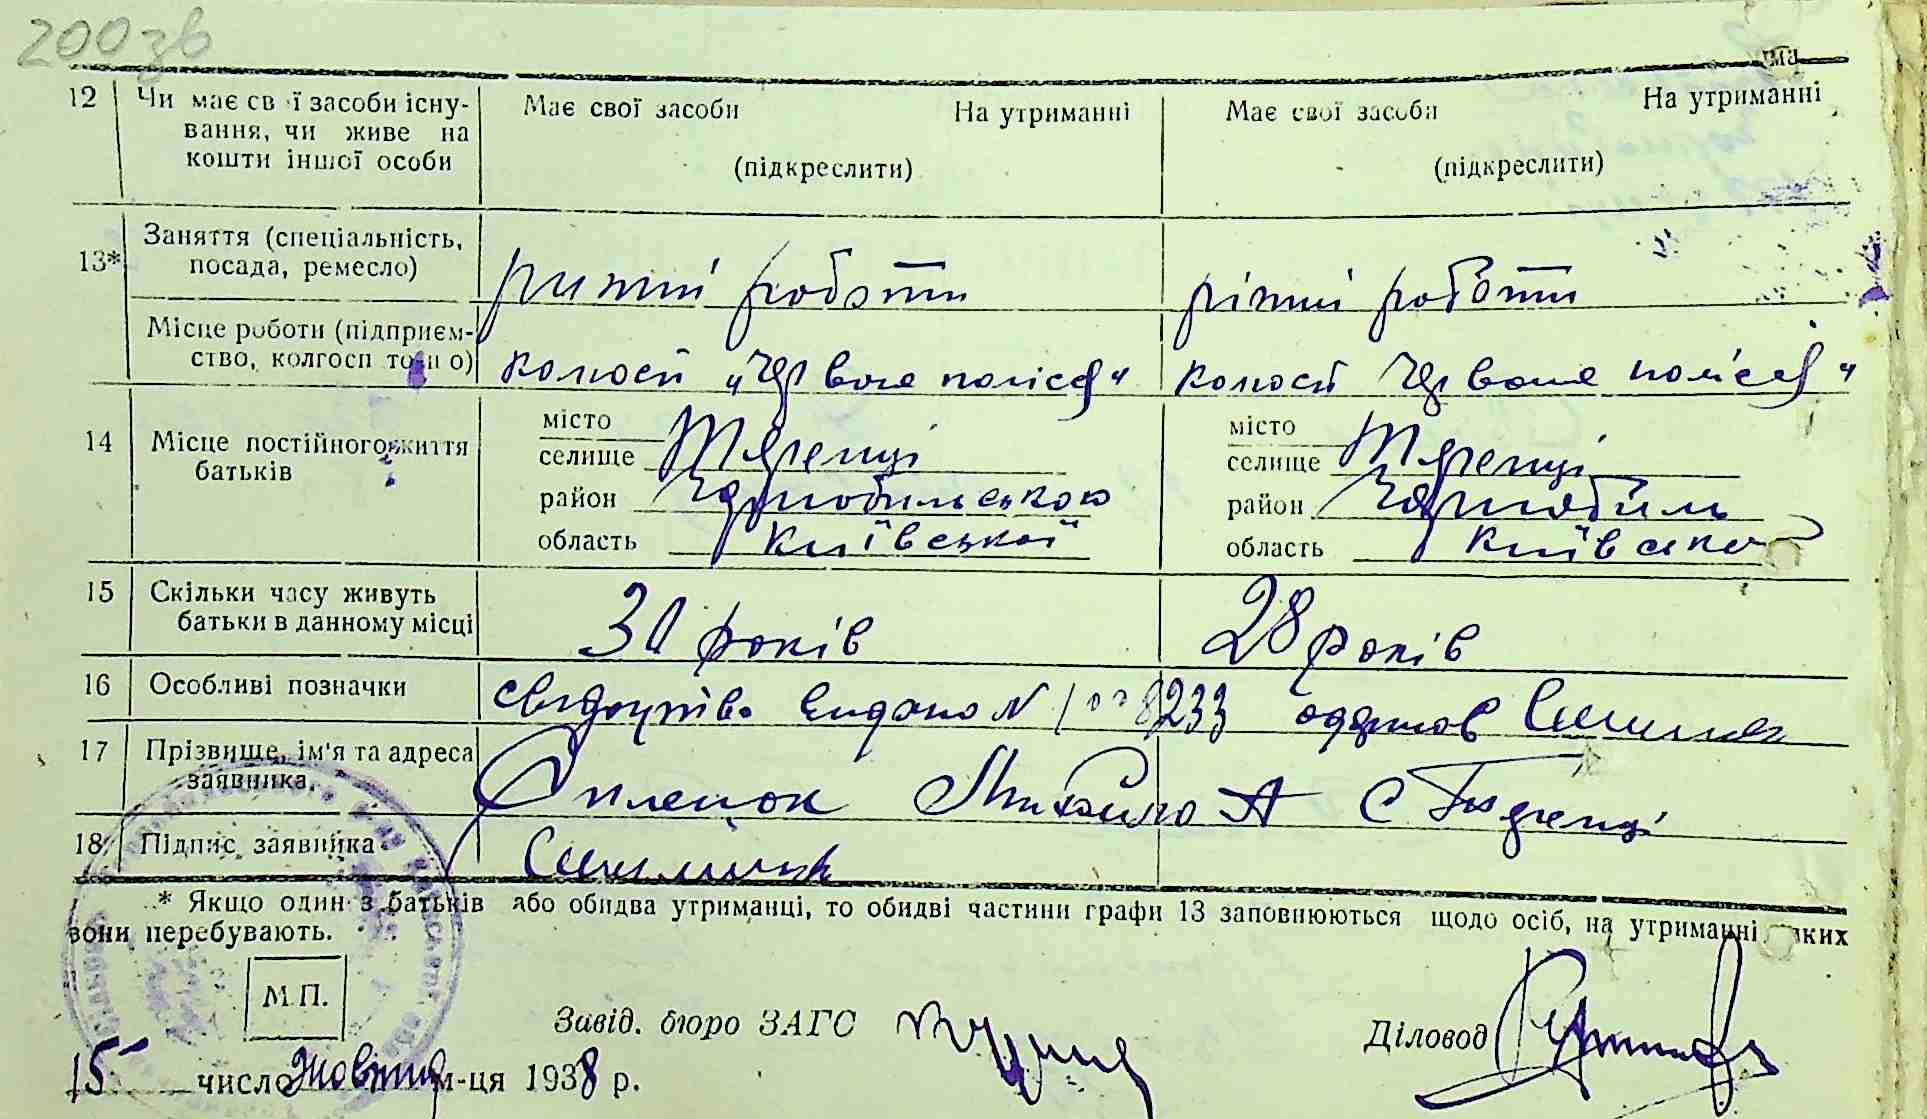 200 зв
ма
12 Чи має св ї засоби існу- Має свої засоби На утриманні Має свої засоби На утриманні
вання, чи живе на
кошти іншої особи (підкреслити) (підкреслити)
Заняття (спеціальність,
13* посада, ремесло) ризні роботи різні роботи
Місце роботи (підприєм-
ство, колгосп тощо) колгосп „Червоне полісся" колгосп Червоне полісся"
14 Місце постійного життя місто місто
батьків селище селище
район Чорнобильського район Чорнобиль
область Київської область
15 Скільки часу живуть
батьки в данному місці 30 років 28 років
16 Особливі позначки видано N 233
17 Прізвище, ім'я та адреса
заявника. Михайло А с
18 Підпис заявника
* Якщо один з батьків або обидва утриманці, то обидві частини графи 13 заповнюються щодо осіб, на утриманні яких
вони перебувають.
М.П.
Завід. бюро ЗАГС Діловод
15 число Жовтня м-ця 1938 р.